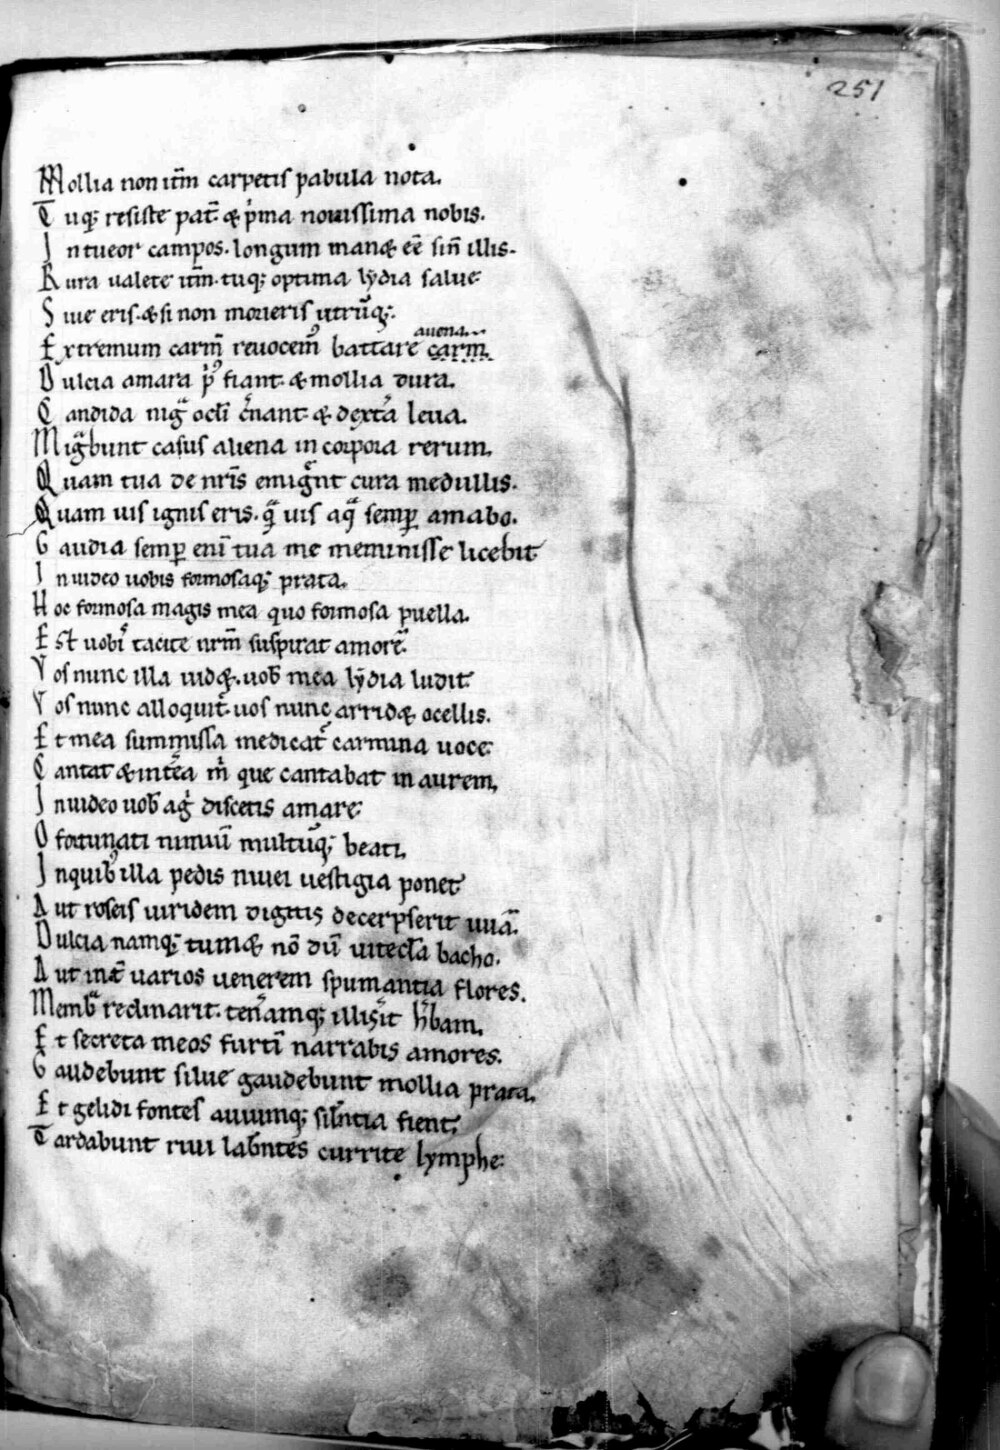 251
Mollia non itm̄ carpetis pabula nota.
Tuq; resiste pat̄ & p̍ma nouissima nobis.
Intueor campos. longum man& eē sin̄ illis.
Rura ualete itm̄. tuq; optima lydia salue
Siue eris. & si non morieris utrūq;.
Extremum carm̄ reuocem᷒ battare auena carm̄.
Dulcia amara p᷒ fiant. & mollia dura.
Candida nigͣ oclī c̄nant & dext̄a leua.
Migͣbunt casus aliena in corpora rerum.
Quam tua de nr̄is emigͣnt cura medullis.
Quam uis ignis eris. qͣ uis aqͣ semp̲ amabo.
Gaudia semp̲ eni᷑ tua me meminisse licebit
Inuideo uobis formosaq; prata.
Hoc formosa magis mea quo formosa puella.
Est uobi᷒ tacite nr̄m suspirat amorē.
Vos nunc illa uid&. uob̄ mea lydia ludit
Vos nunc alloquit᷑. uos nunc arrid& ocellis.
Et mea summissa medicat᷑ carmina uoce
Cantat & int̄ea m̍ que cantabat in aurem.
Inuideo uob̄ agͥ discetis amare
O fortunati nimiū multūq; beati.
In quib᷒ illa pedis niuei uestigia ponet
Aut roseis uiridem digitis decerpserit uuā.
Dulcia namq; tum& nō dū uitecl̄a bacho.
Aut int̄ uarios uenerem spumantia flores.
Membͣ reclinarit. ten̄amq; illis̍it h̄bam.
Et secreta meos furtī narrabis amores.
Gaudebunt silue gaudebunt mollia prata.
Et gelidi fontes auiumq; sil̄ntia fient.
Tardabunt riui lab̄ntes currite lymphe